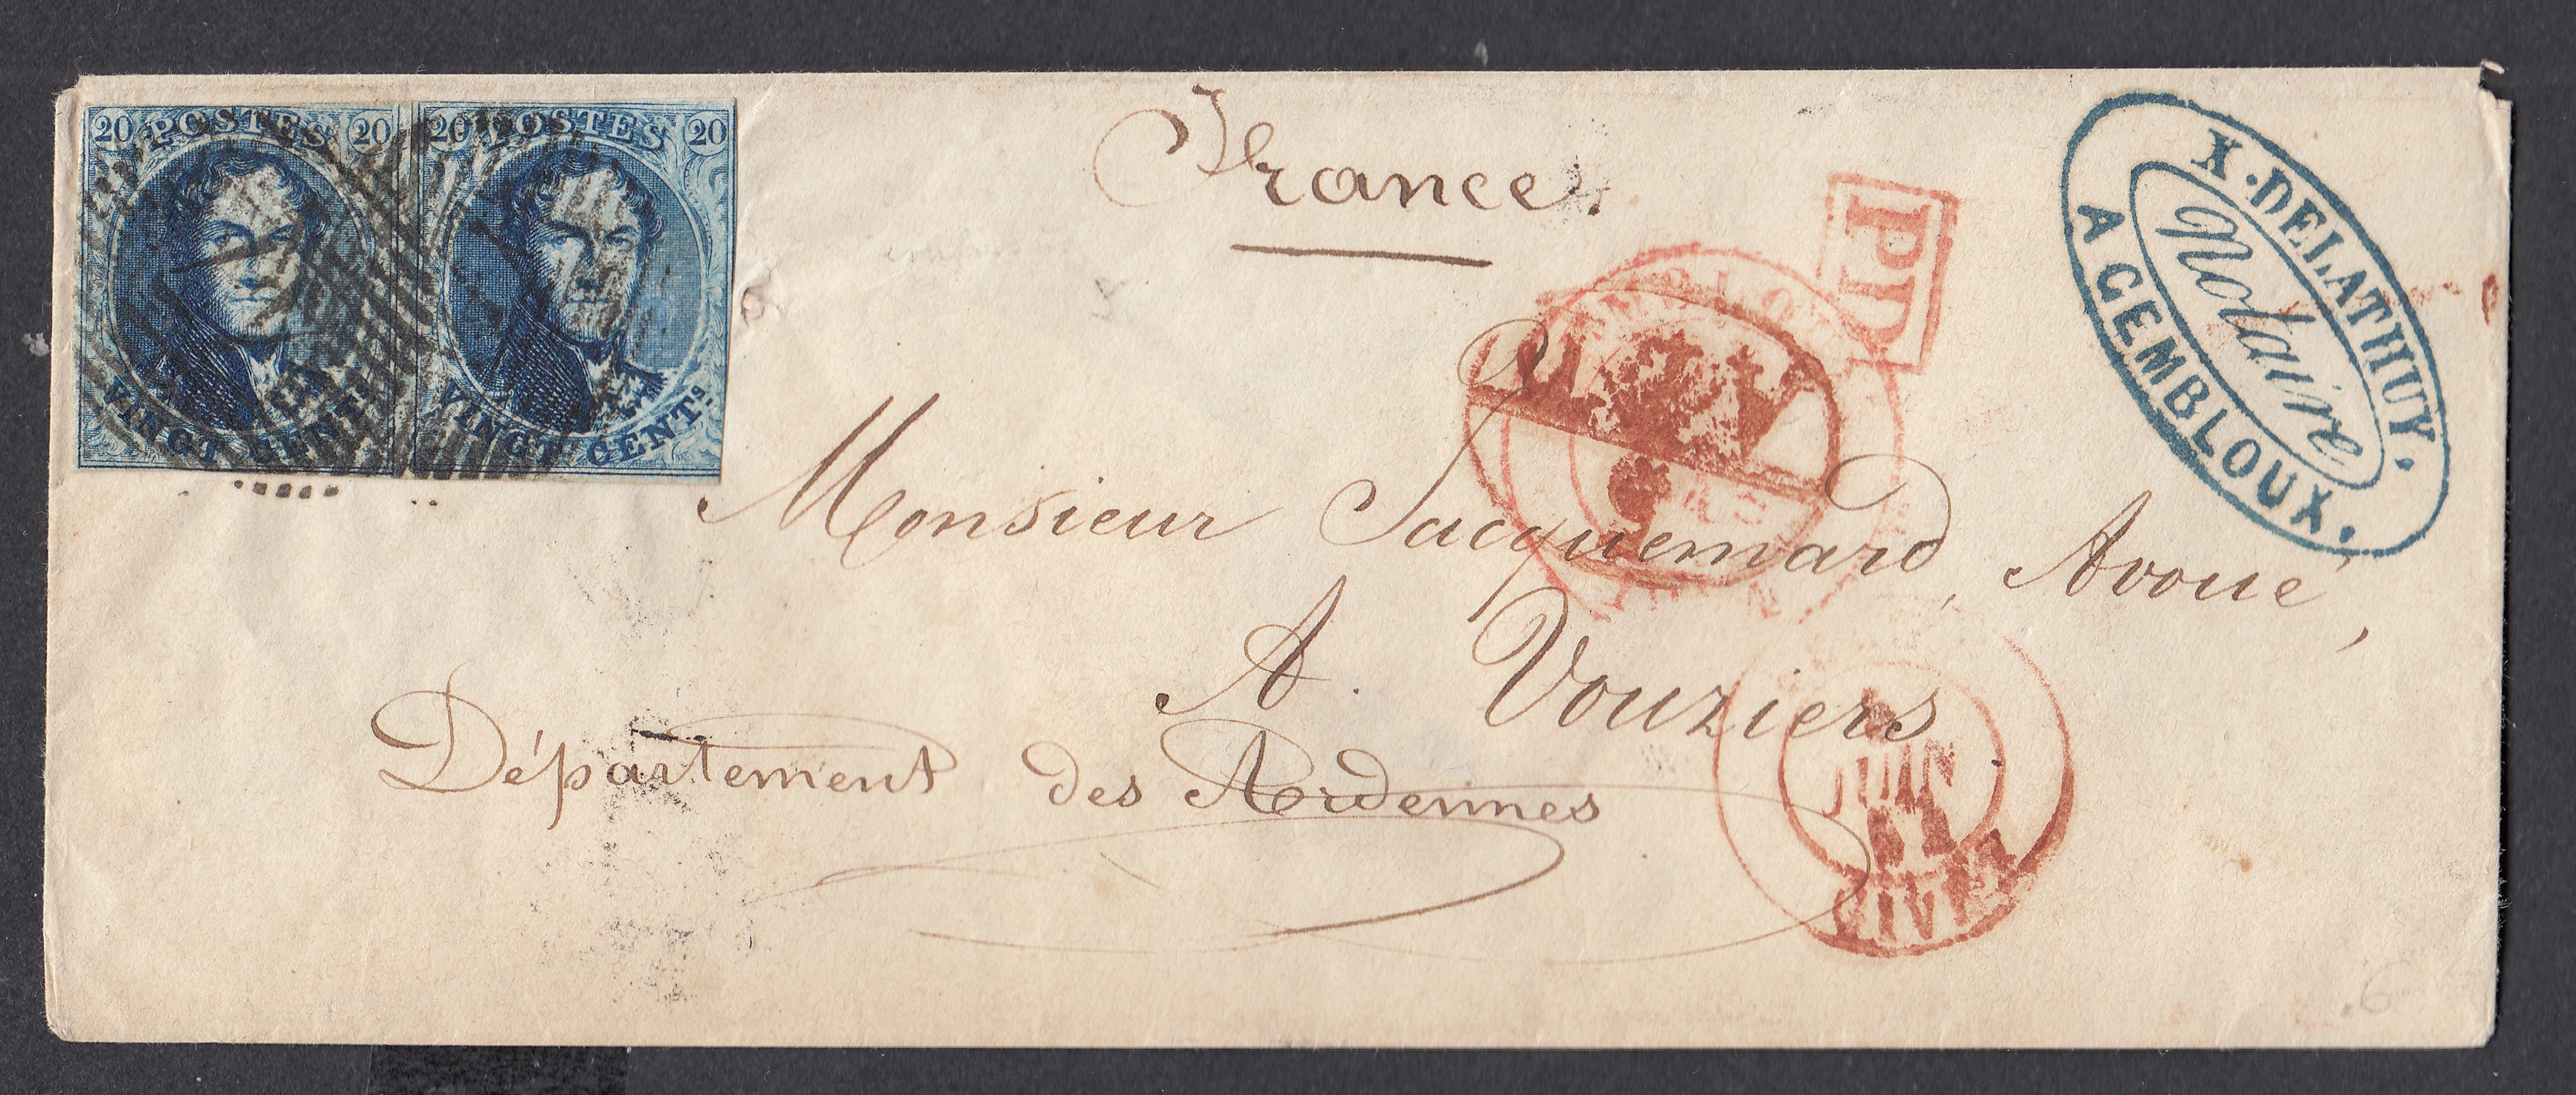 20 POSTES 20
VINGT CENTs
20 POSTES 20
VINGT CENTs
France.
PD
X. DELATHUY.
Notaire
A GEMBLOUX.
Monsieur Jacquemard, Avoué,
A Vouziers
Département des Ardennes
JUIN
GIVET